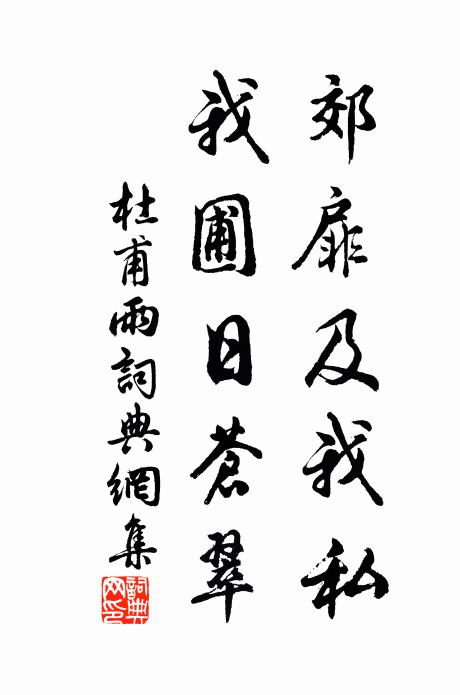 郊扉及我私
我圃日蒼翠
杜甫雨詞典網集
詞典網印